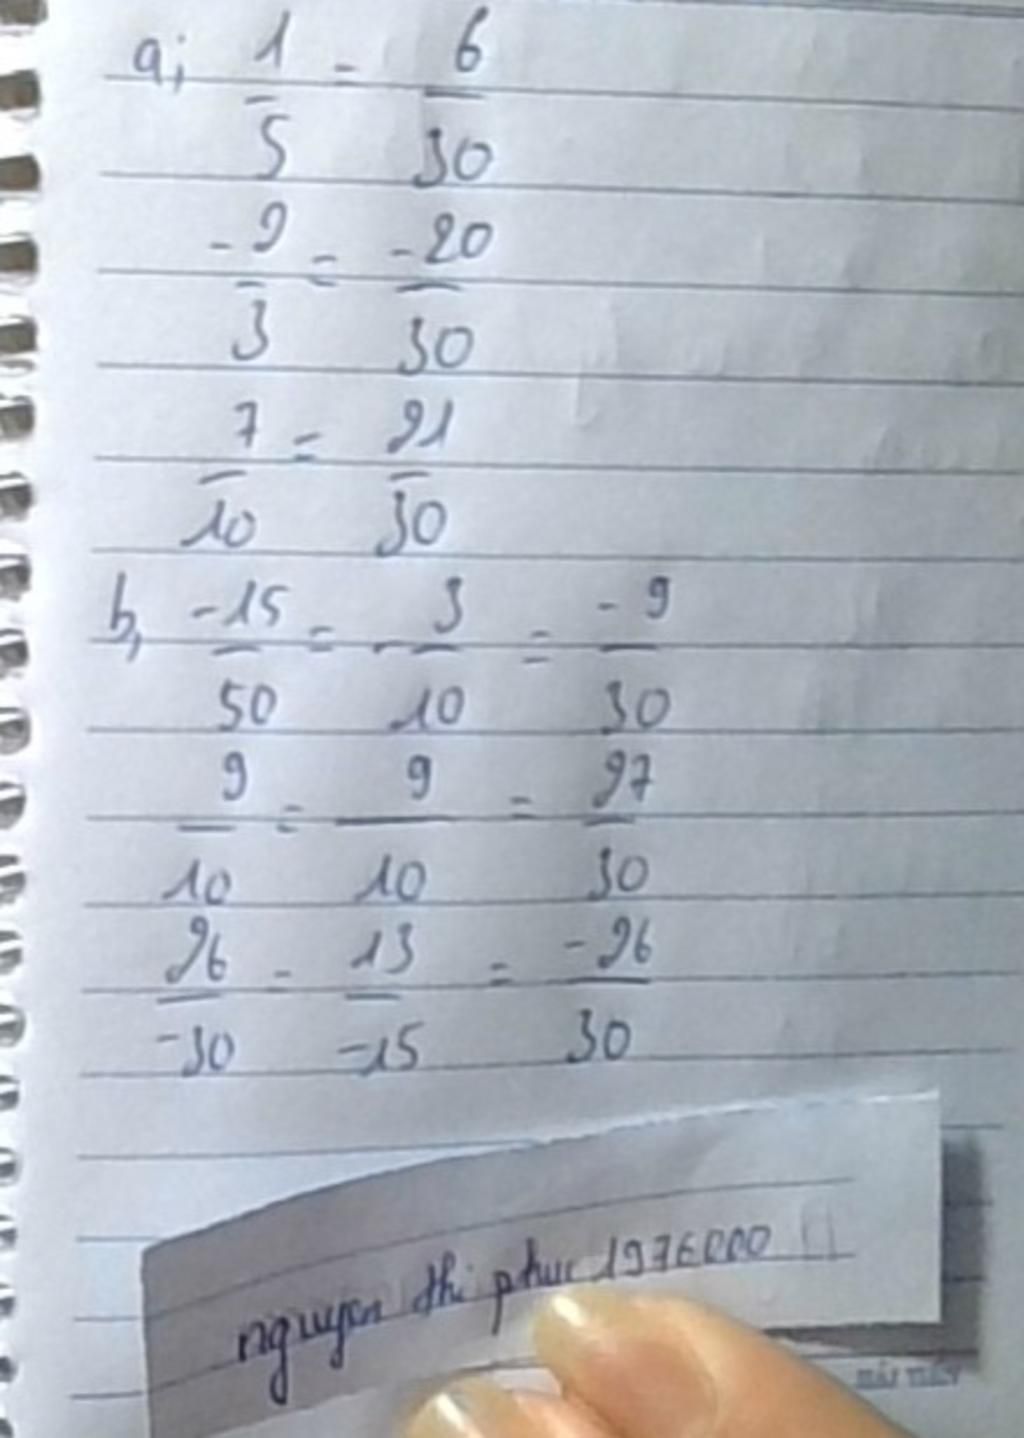 a; 1/5 = 6/30
-2/3 = -20/30
7/10 = 21/30
b, -15/50 = -3/10 = -9/30
9/10 = 9/10 = 27/30
26/-30 = 13/-15 = -26/30
nguyen thi phuc 1976000
HẢI TIẾN